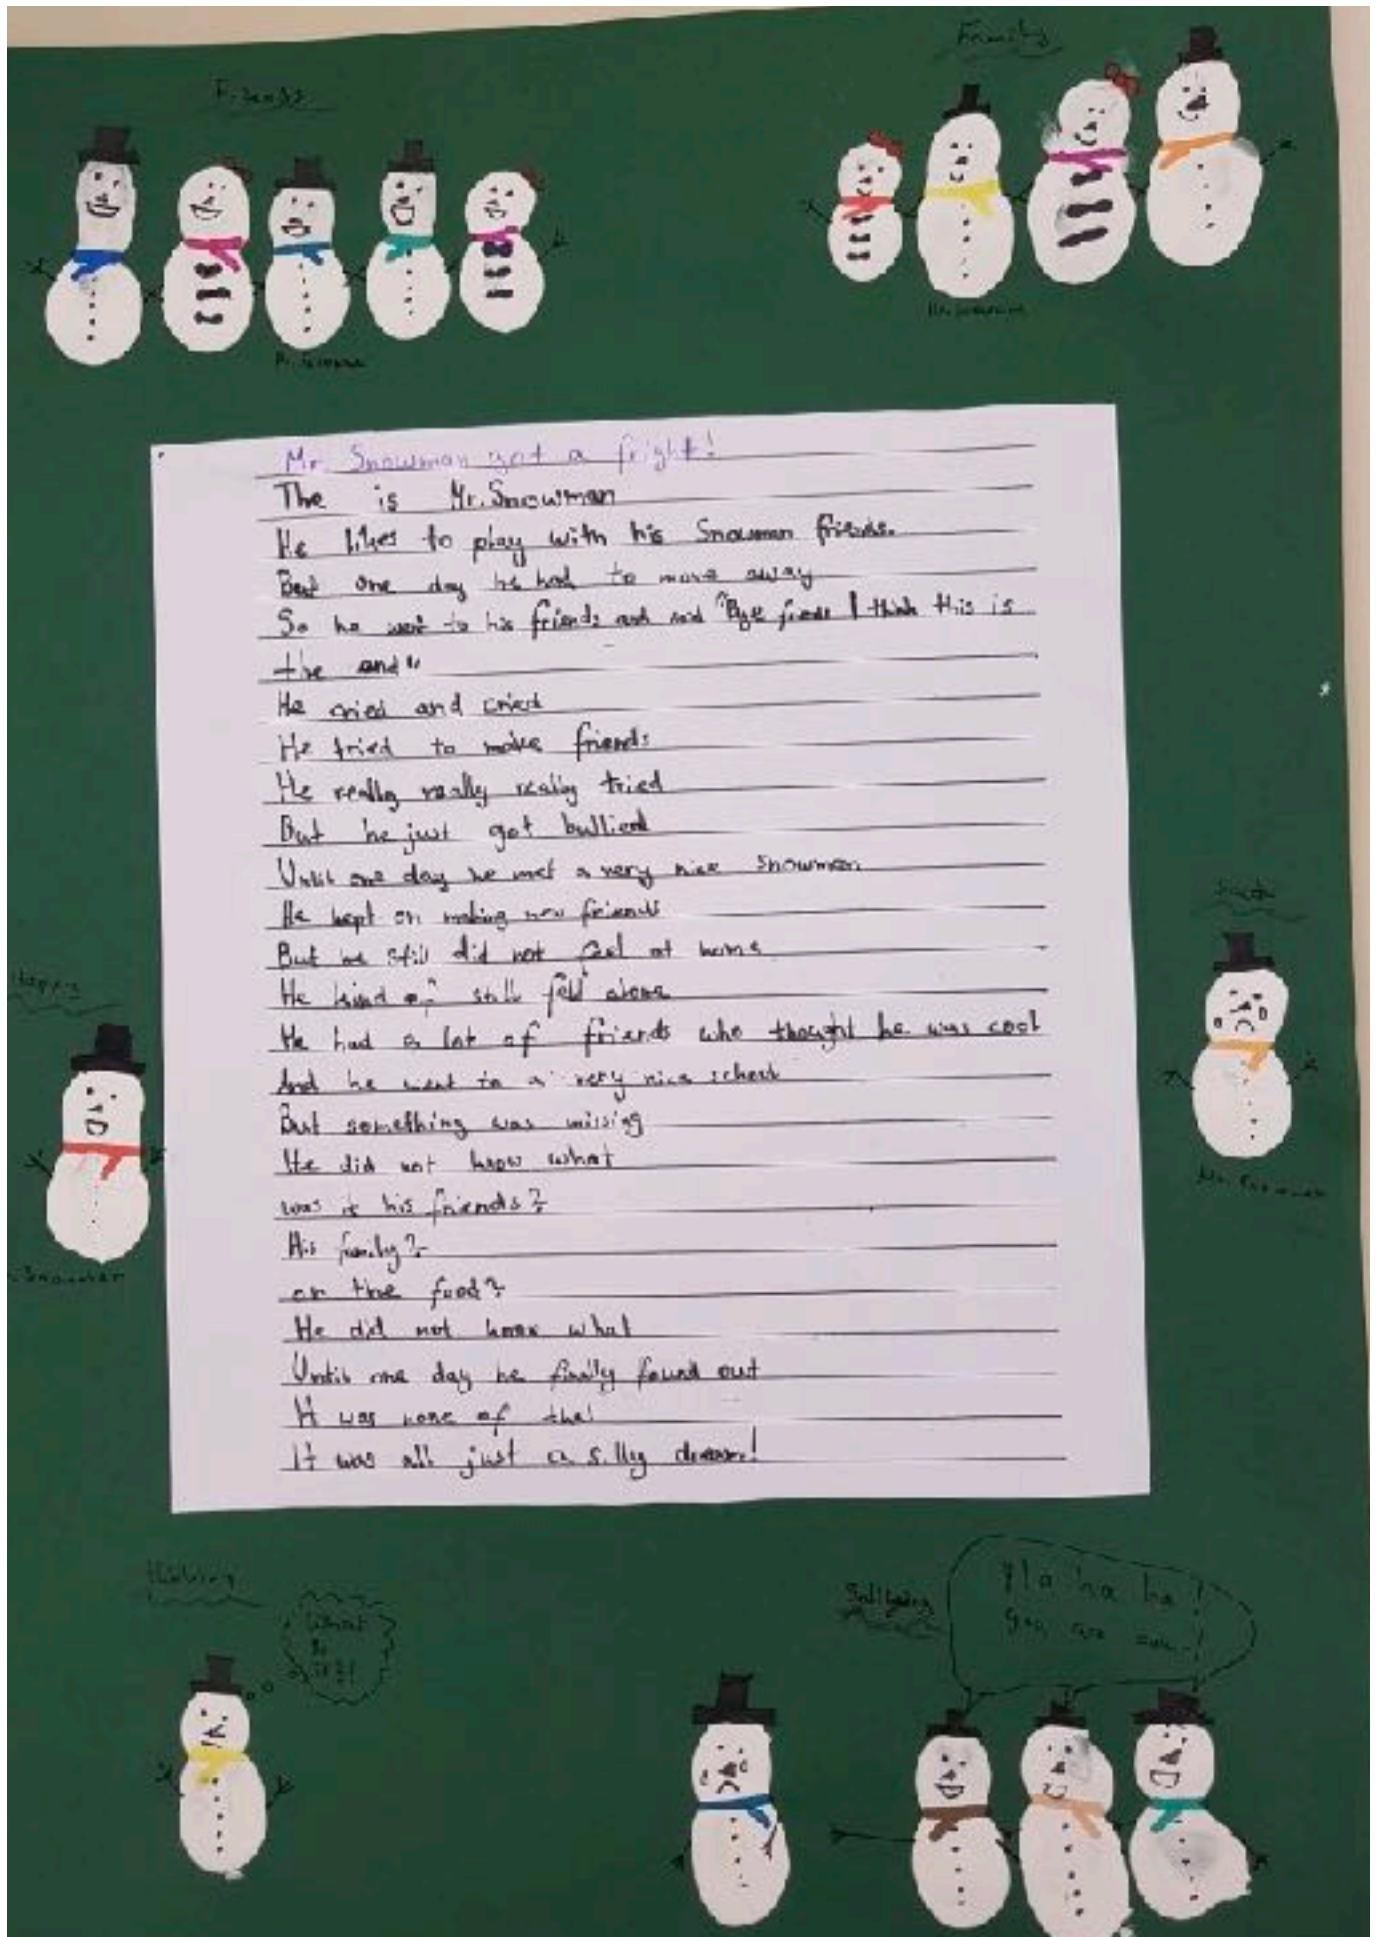 Friends
Family
Mr. Snowman
Mr. Snowman
Mr. Snowman got a fright!
The is Mr. Snowman
He likes to play with his Snowman friends.
But one day he had to move away
So he went to his friends and said "Bye friends I think this is
the end"
He cried and cried
He tried to make friends
He really really really tried
But he just got bullied
Until one day he met a very nice snowman
He kept on making new friends
But he still did not feel at home
He kind of still felt alone
He had a lot of friends who thought he was cool
And he went to a very nice school
But something was missing
He did not know what
was it his friends?
His family?
or the food?
He did not know what
Until one day he finally found out
It was none of that
It was all just a silly dream!
Happy
Snowman
Mr. Snowman
thinking
What
is
it?!
Ha ha ha!
you are